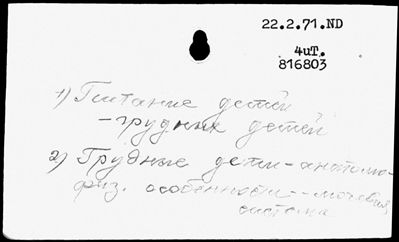 22.2.71.ND
4ит.
816803
1) Питание детей
- грудных детей
2) Грудные дети - анатомо-
физ. особенности -- мочевая
система